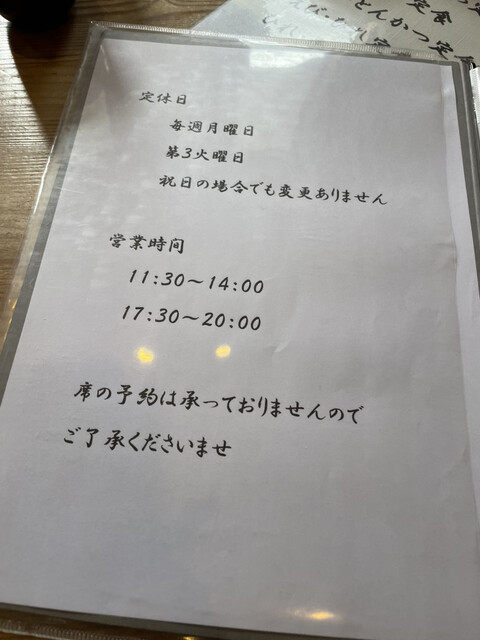 定食
とんかつ定食
定休日
毎週月曜日
第3火曜日
祝日の場合でも変更ありません
営業時間
11:30～14:00
17:30～20:00
席の予約は承っておりませんので
ご了承くださいませ